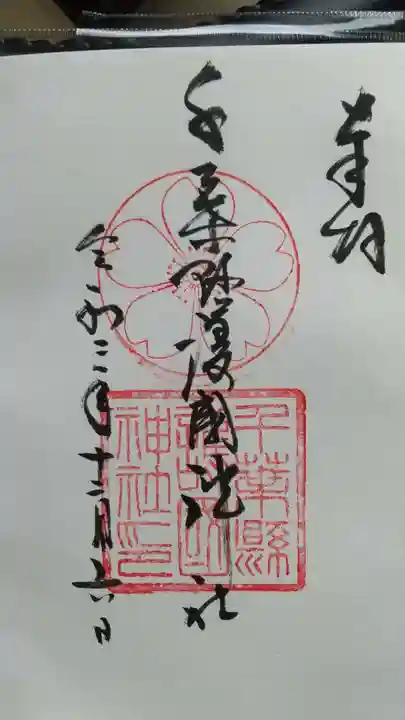 奉拝
千葉縣護國神社
令和三年十二月六日
千葉縣
護國
神社印